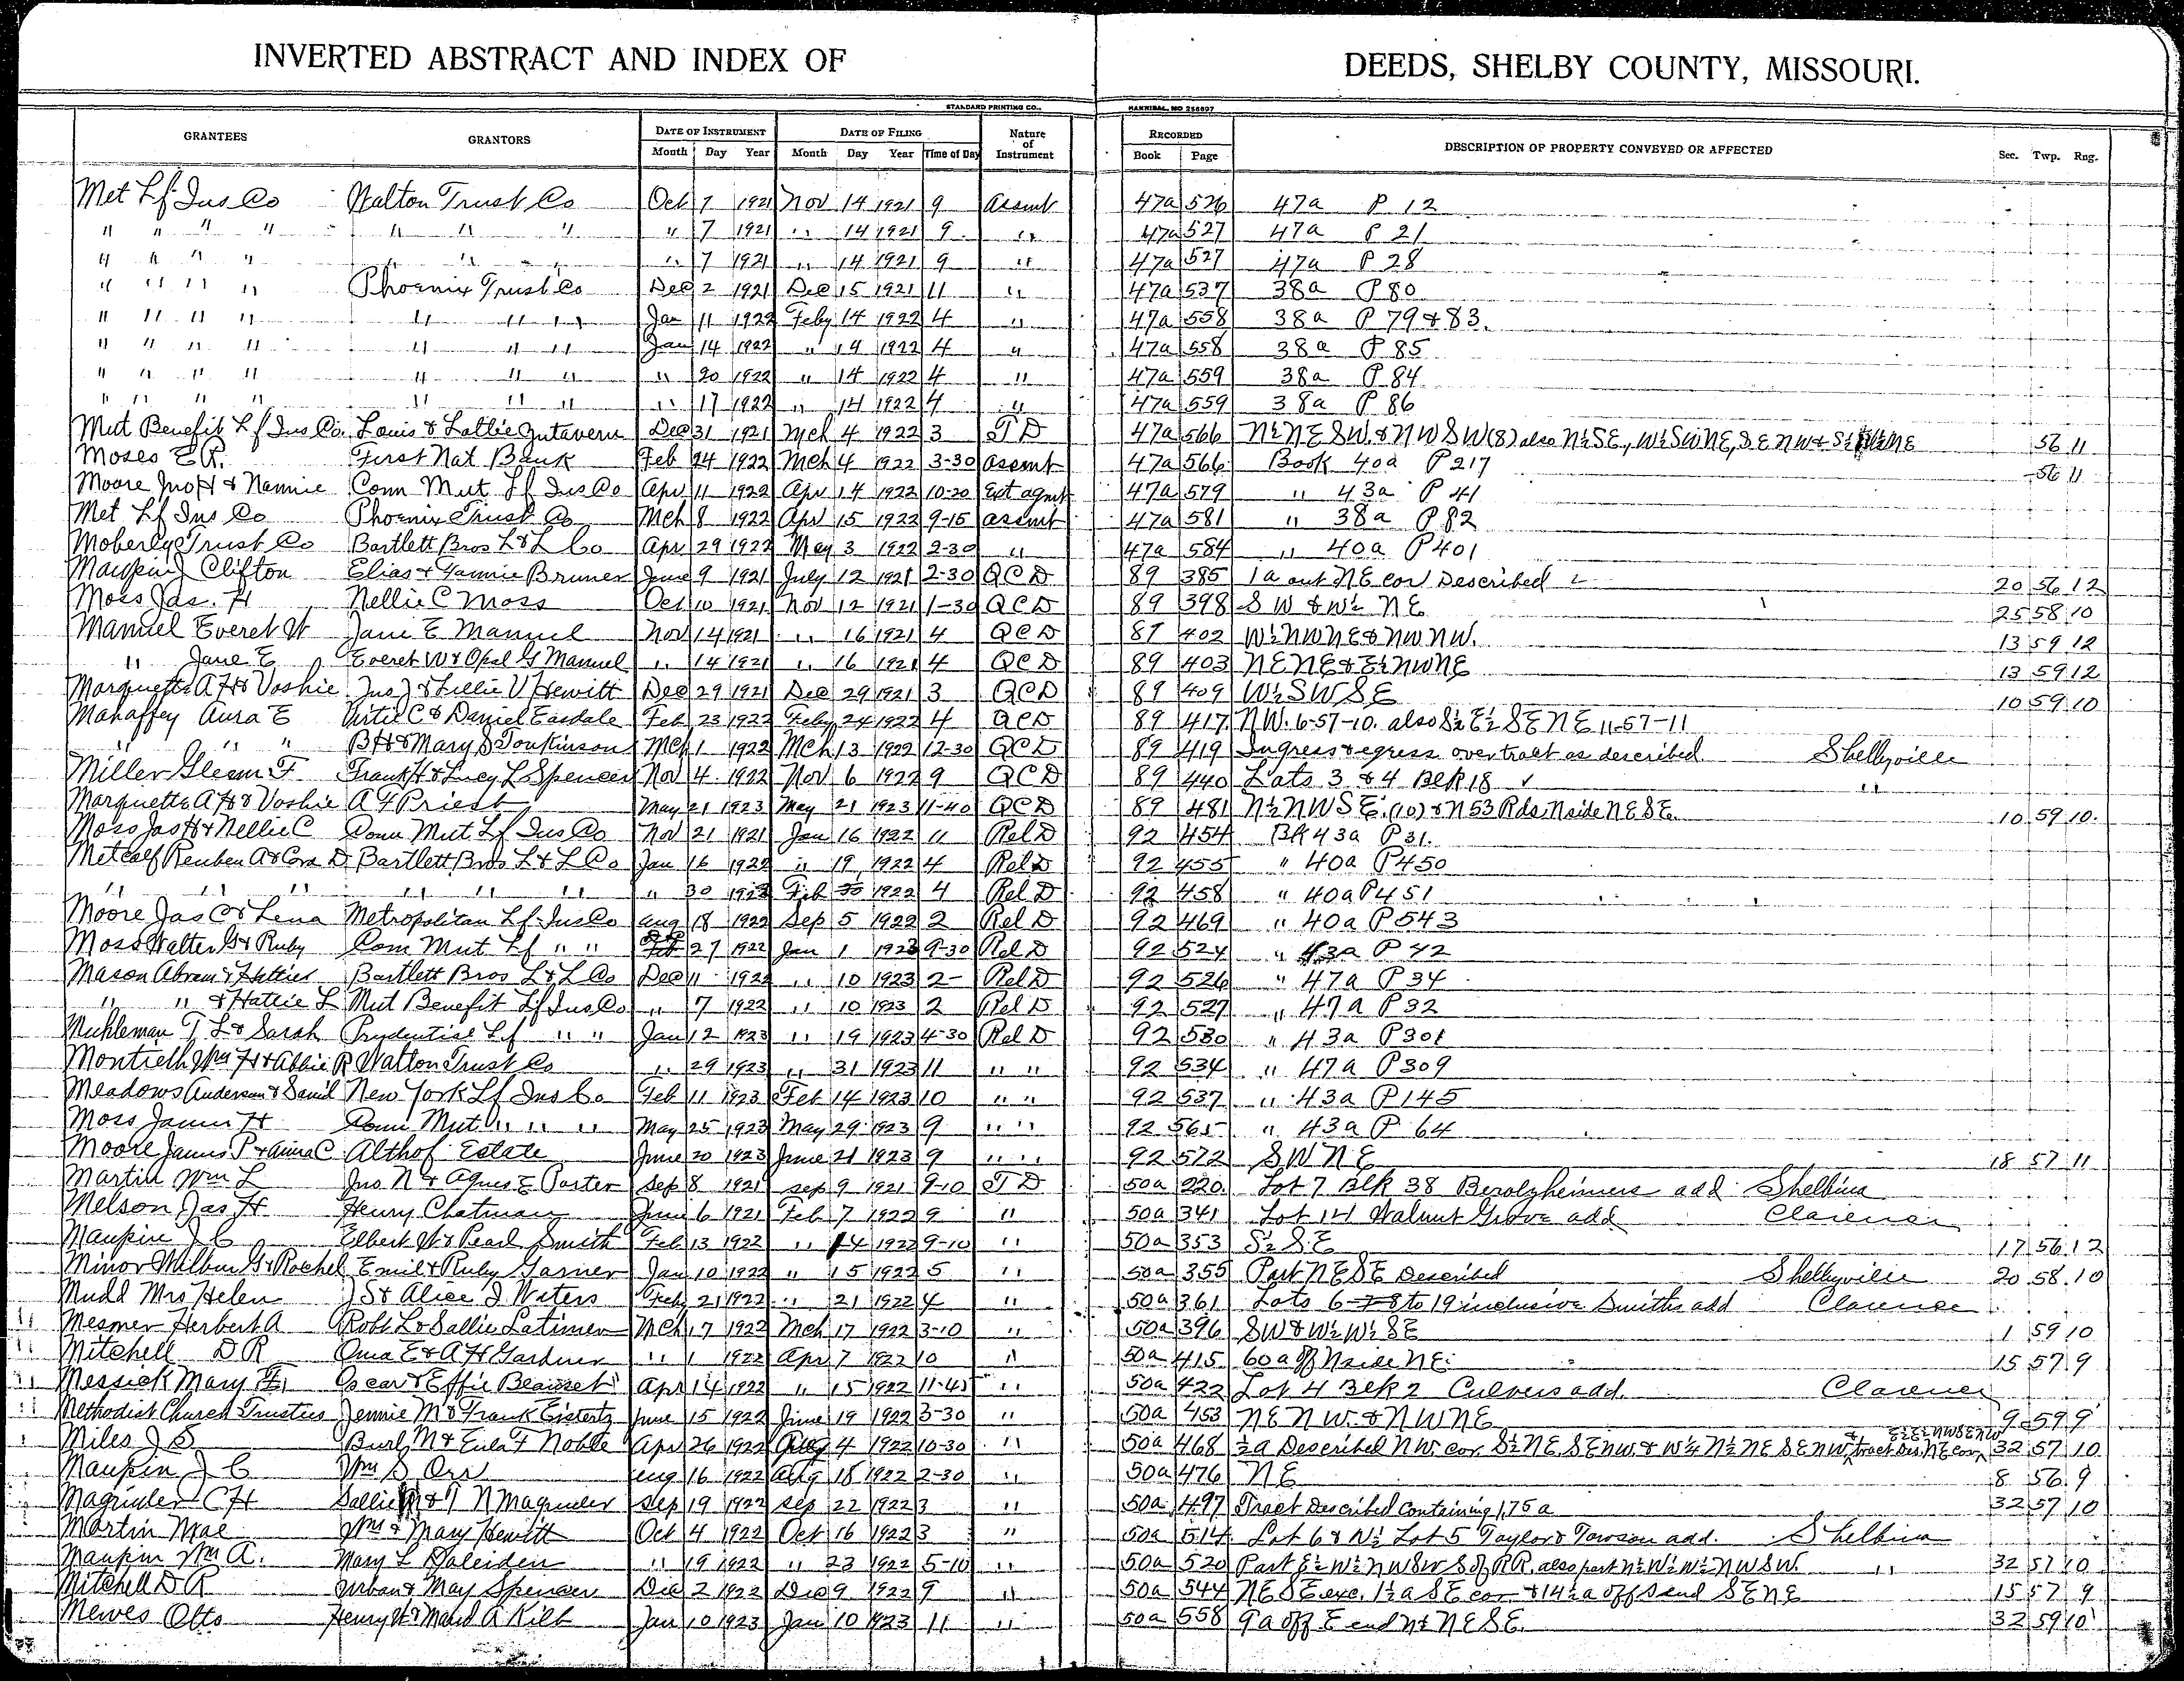 INVERTED ABSTRACT AND INDEX OF DEEDS, SHELBY COUNTY, MISSOURI.
STANDARD PRINTING CO., HANNIBAL, MO 256697
GRANTEES GRANTORS DATE OF INSTRUMENT DATE OF FILING Nature of Instrument RECORDED DESCRIPTION OF PROPERTY CONVEYED OR AFFECTED Sec. Twp. Rng.
Month Day Year Month Day Year Time of Day Book Page
Met Lf Ins Co Walton Trust Co Oct 7 1921 Nov 14 1921 9 Assmt 47a 526 47a P 12
" " " " " " " " 7 1921 " 14 1921 9 " 47a 527 47a P 21
" " " " " " " " 7 1921 " 14 1921 9 " 47a 527 47a P 28
" " " " Phoenix Trust Co Dec 2 1921 Dec 15 1921 11 " 47a 537 38a P 80
" " " " " " " Jan 11 1922 Feby 14 1922 4 " 47a 558 38a P 79 & 83.
" " " " " " " Jan 14 1922 " 14 1922 4 " 47a 558 38a P 85
" " " " " " " " 20 1922 " 14 1922 4 " 47a 559 38a P 84
" " " " " " " " 17 1922 " 14 1922 4 " 47a 559 38a P 86
Mut Benefit Lf Ins Co. Louis & Lottie Gutavern Dec 31 1921 Mch 4 1922 3 T D 47a 566 N½ NE SW. & NW SW (8) also N½ SE., W½ SW NE, SE NW & S½ NE 56 11
Moses E R. First Nat Bank Feb 24 1922 Mch 4 1922 3-30 Assmt 47a 566 Book 40a P 217 56 11
Moore Jno H & Nannie Conn Mut Lf Ins Co Apr 11 1922 Apr 14 1922 10-20 Ext agmt 47a 579 " 43a P 41
Met Lf Ins Co Phoenix Trust Co Mch 8 1922 Apr 15 1922 9-15 assmt 47a 581 " 38a P 82
Moberly Trust Co Bartlett Bros L & L Co Apr 29 1922 May 3 1922 2-30 " 47a 584 " 40a P 401
Maupin J Clifton Elias & Fannie Bruner June 9 1921 July 12 1921 2-30 QCD 89 385 1a out NE cor Described 20 56 12
Moss Jas. H Nellie C Moss Oct 10 1921 Nov 12 1921 1-30 QCD 89 398 SW & W½ NE 25 58 10
Manuel Everet W Jane E Manuel Nov 14 1921 " 16 1921 4 QCD 89 402 W½ NW NE & NW NW. 13 59 12
" Jane E Everet W & Opal G Manuel " 14 1921 " 16 1921 4 QCD 89 403 NE NE & E½ NW NE 13 59 12
Marquette A H & Voshie Jno J & Lillie V Hewitt Dec 29 1921 Dec 29 1921 3 QCD 89 409 W½ SW SE 10 59 10
Mahaffey Aura E Virtie C & Daniel Easdale Feb 23 1922 Feby 24 1922 4 QCD 89 417 NW. 6-57-10. also S½ E½ SE NE 11-57-11
" " " B H & Mary S Tonkinson Mch 1 1922 Mch 13 1922 12-30 QCD 89 419 Ingress & egress over tract as described Shelbyville
Miller Glenn F. Frank H & Lucy L Spencer Nov 4 1922 Nov 6 1922 9 QCD 89 440 Lots 3 & 4 Blk 18 "
Marquette A H & Voshie A F Priest May 21 1923 May 21 1923 11-40 QCD 89 481 N½ NW SE. (10) & N 53 Rds N side NE SE. 10 59 10.
Moss Jas H & Nellie C Conn Mut Lf Ins Co Nov 21 1921 Jan 16 1922 11 Rel D 92 454 Bk 43a P 31.
Metcalf Reuben A & Cora D Bartlett Bros L & L Co Jan 16 1922 " 19 1922 4 Rel D 92 455 " 40a P 450
" " " " " " " 30 1922 Feb 1922 4 Rel D 92 458 " 40a P 451
Moore Jas C & Lena Metropolitan Lf Ins Co Aug 18 1922 Sep 5 1922 2 Rel D 92 469 " 40a P 543
Moss Walter G & Ruby Conn Mut Lf " " Dec 27 1922 Jan 1 1923 9-30 Rel D 92 524 " 43a P 42
Mason Abram & Hattie L Bartlett Bros L & L Co Dec 11 1922 " 10 1923 2- Rel D 92 526 " 47a P 34
" " & Hattie L Mut Benefit Lf Ins Co " 7 1922 " 10 1923 2 Rel D 92 527 " 47a P 32
Muhleman T L & Sarah Prudential Lf " " Jan 12 1923 " 19 1923 4-30 Rel D 92 530 " 43a P 301
Montrieth Wm H & Abbie R Walton Trust Co " 29 1923 " 31 1923 11 " " 92 534 " 47a P 309
Meadows Anderson & Saml New York Lf Ins Co Feb 11 1923 Feb 14 1923 10 " " 92 537 " 43a P 145
Moss James H Conn Mut " " " May 25 1923 May 29 1923 9 " " 92 565 " 43a P 64
Moore James P & Anna C Althof Estate June 20 1923 June 21 1923 9 " " 92 572 SW NE 18 57 11
Martin Wm L Jno N & Agnes E Porter Sep 8 1921 Sep 9 1921 9-10 T D 50a 220 Lot 7 Blk 38 Berolzheimers add Shelbina
Melson Jas H Henry Chatman June 6 1921 Feb 7 1922 9 " 50a 341 Lot 14 Walnut Grove add Clarence
Maupin J C Elbert W & Pearl Smith Feb 13 1922 " 14 1922 9-10 " 50a 353 S½ SE 17 56 12
Minor Wilbur G & Rachel Emil & Ruby Garner Jan 10 1922 " 15 1922 5 " 50a 355 Part NE SE Described Shelbyville 20 58 10
Mudd Mrs Helen J S & Alice J Waters Feb 21 1922 " 21 1922 4 " 50a 361 Lots 6-7-8 to 19 inclusive Smiths add Clarence
" Mesmer Herbert A Robt L & Sallie Latimer Mch 17 1922 Mch 17 1922 3-10 " 50a 396 SW & W½ W½ SE 1 59 10
" Mitchell D R Oma E & A H Gardner " 1 1922 Apr 7 1922 10 " 50a 415 60 a off N side NE. 15 57 9
" Messick Mary E. Oscar & Effie Apr 14 1922 " 15 1922 11-45 " 50a 422 Lot 4 Blk 2 Culvers add. Clarence
" Methodist Church Trustees Jennie M & Frank June 15 1922 June 19 1922 3-30 " 50a 453 NE NW. & NW NE 9 59 9
" Miles J S Burl M & Eula F Noble Apr 26 1922 Aug 4 1922 10-30 " 50a 468 ½ a Described NW cor S½ NE SE NW. & W¼ N½ NE SE NW & E½ E½ NW SE NW tract des. NE cor 32 57 10
Maupin J C Wm S Orr Aug 16 1922 Aug 18 1922 2-30 " 50a 476 NE 8 56 9
Magruder C H Sallie M & T N Magruder Sep 19 1922 Sep 22 1922 3 " 50a 497 Tract Described Containing 1.75 a 32 57 10
Martin Mae Wm & Mary Hewitt Oct 4 1922 Oct 16 1922 3 " 50a 514 Lot 6 & N½ Lot 5 Taylor & Towson add. Shelbina
Maupin Wm A. Mary L Daleiden " 19 1922 " 23 1922 5-10 " 50a 520 Part E½ W½ NW SW S of RR. also part N½ W½ W½ NW SW. " 32 57 10
Mitchell D R Urban & May Spencer Dec 2 1922 Dec 9 1922 9 " 50a 544 NE SE exc. 1½ a SE cor & 14½ a off S end SE NE 15 57 9
Mewes Otto Henry W & Maud A Kilb Jan 10 1923 Jan 10 1923 11 " 50a 558 9 a off E end N½ NE SE. 32 59 10